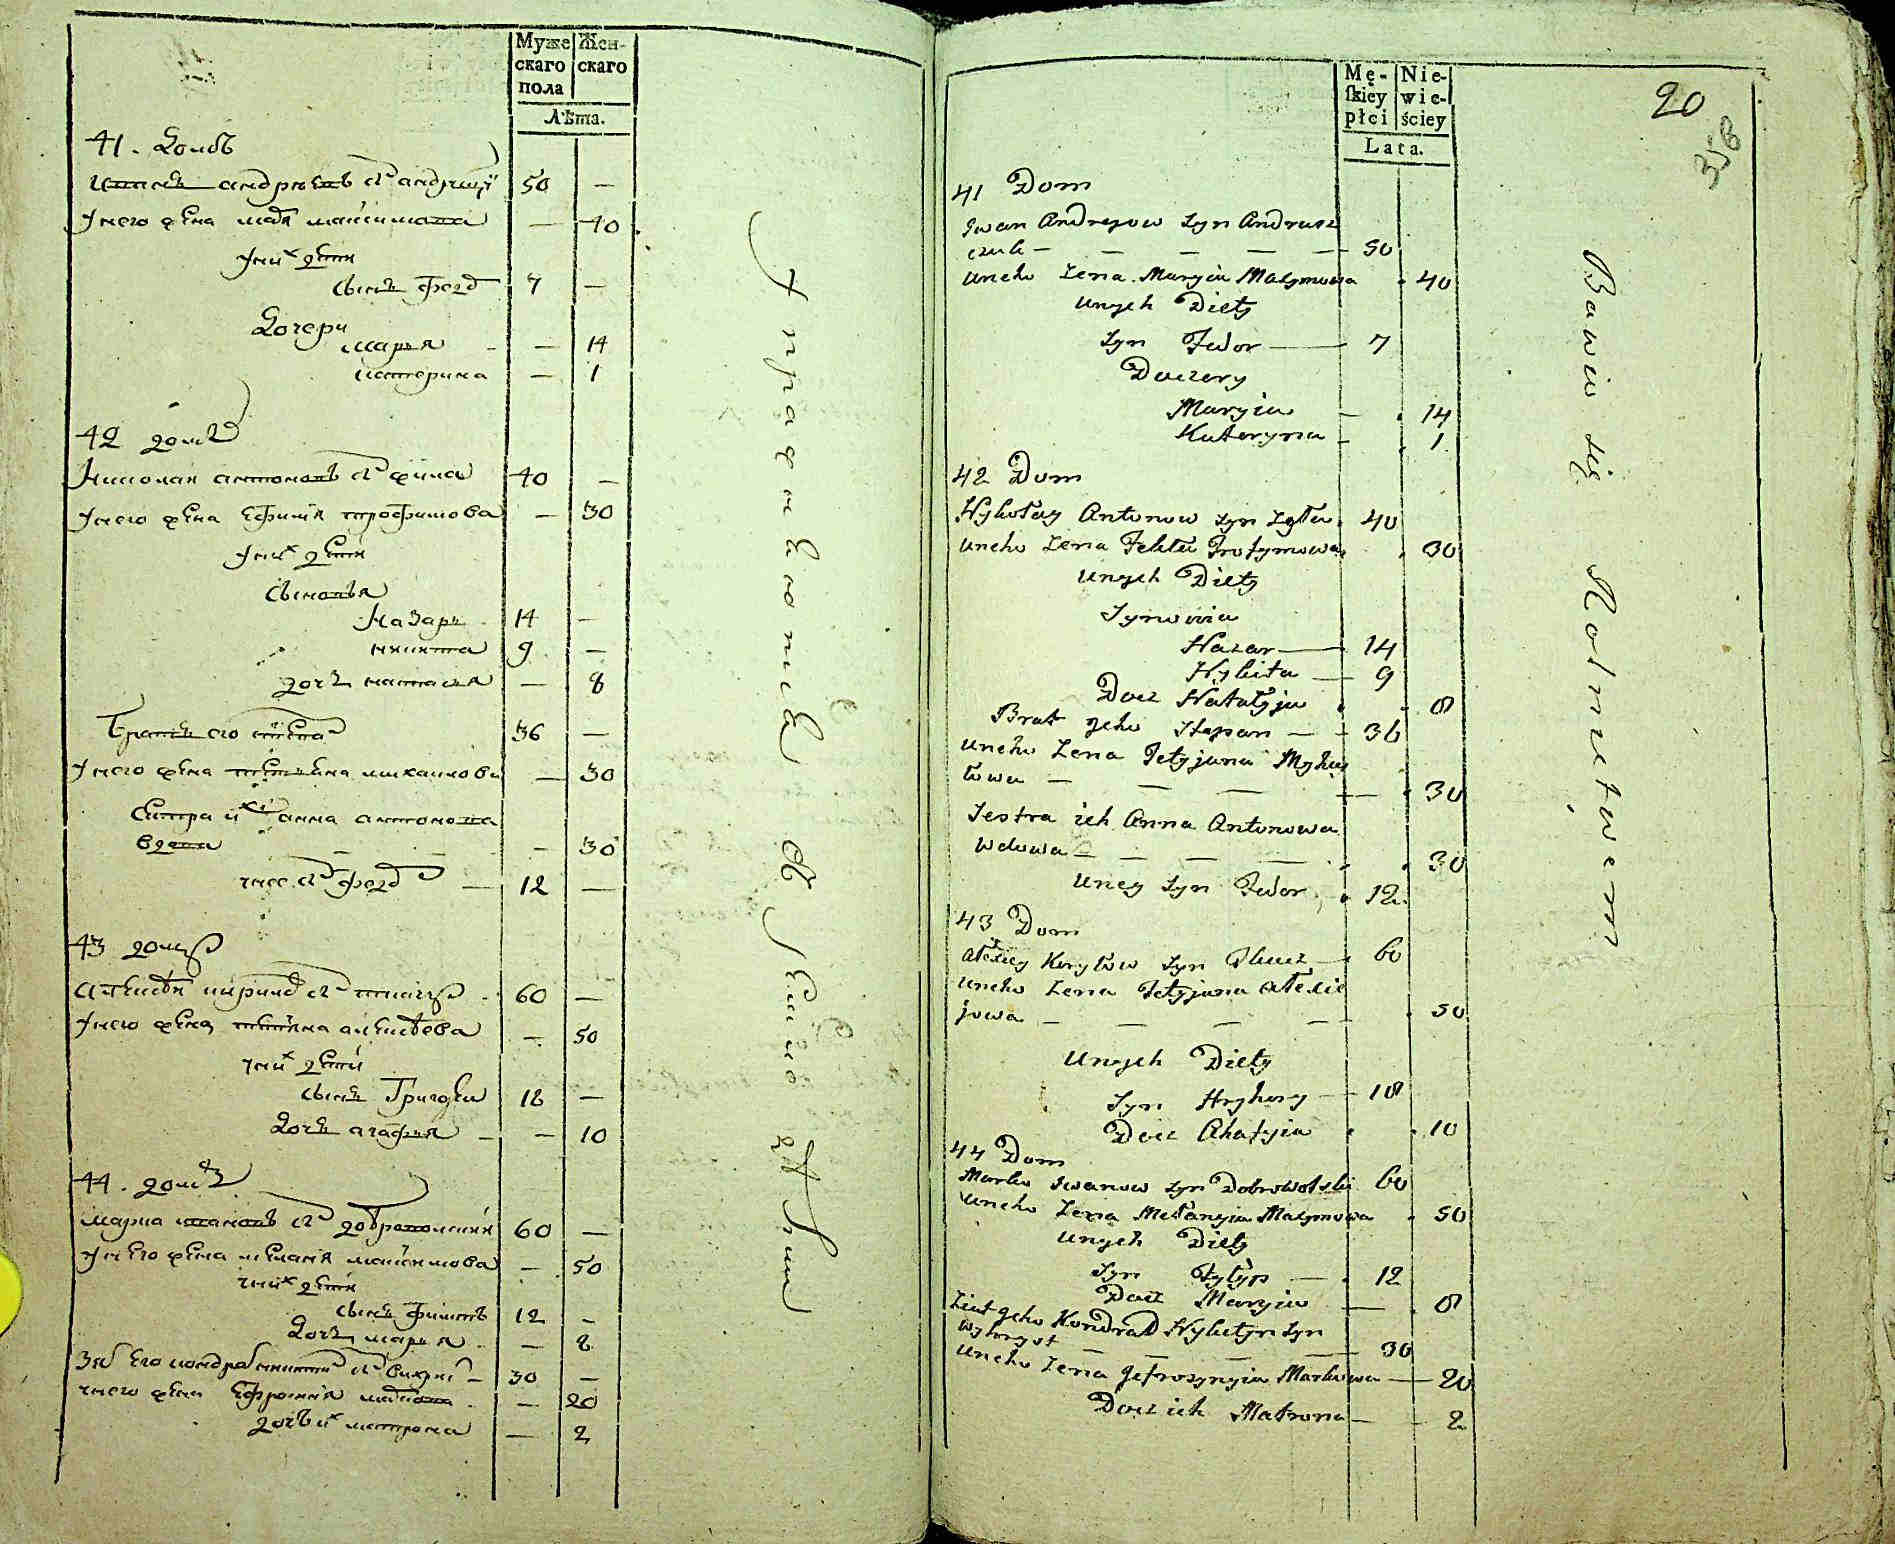 Муже Жен-
скаго скаго
пола
Лѣта.
41. домъ
50 —
у него жена — 40
у них дѣти
сынъ феод 7 —
дочери
марья — 14
катерина — 1
42 домъ
Николай антоновъ сн 40 —
у него жена ефимія трофимова — 30
у них дѣти
сыновья
Назаръ 14 —
никита 9 —
дочь наталья — 8
братъ его степан 36 —
у него жена татьяна михаилова — 30
сестра их анна антонова
вдова — 30
у нее сн феод 12 —
43 домъ
алексѣй кирилов сн ткачъ 60 —
у него жена татьяна алексѣева — 50
у них дѣти
сынъ Григорѣи 18 —
дочь агафья — 10
44. домъ
марко ивановъ сн добровольскій 60 —
у него жена меланія максимова — 50
у них дѣти
сынъ филипъ 12 —
дочь марья — 8
зят его кондрат никитин сн 30 —
у него жена ефросинія маркова — 20
дочь их матрона — 2
Mę- Nie-
ſkiey wie-
płci ściey
Lata.
20
41 Dom
Iwan Andrejow Syn Andrusz
czuk — — — — 50
uneho Zena Maryia Maxymowa 40
unych Diety
Syn Fedor — 7
Doczery
Maryia — 14
Kateryna — 1
42 Dom
Nykołay Antonow syn Zyła 40
uneho Zena Trofymowa 30
unych Diety
Synowia
Nazar — 14
Nykita — 9
Docz Natałyja 8
Brat jeho Stepan — 36
uneho Zena Tetyjana Mychaj
łowa — — — — 30
Sestra ich Anna Antonowa
wdowa — — — — 30
uney Syn Fedor 12
43 Dom
Ałexiey Kyryłow syn Tkacz — 60
uneho Zena Tetyjana Ałexie
jowa — — — — 50
unych Diety
Syn Hryhory — 18
Docz Ahafyia 10
44 Dom
Marko Iwanow syn Dobrowolski 60
uneho Zena Mełanyia Maxymowa 50
unych Diety
Syn Fyłyp — 12
Docz Maryia — 8
Ziat jeho Kondrad Nykityn syn
— — — — 30
uneho Zena Jefrosynyia Markowa — 20
Docz ich Matrona — 2
Bawiu się Rolnictwem